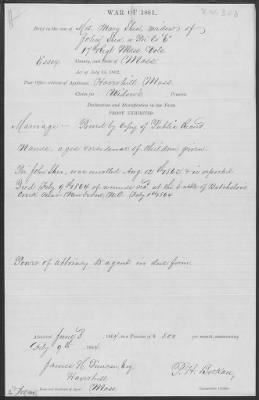 WAR OF 1861.
Brief in the case of Mrs Mary Shea widow of
John Shea Co "E"
17th Regt Mass Vols
Essex County, and State of Mass
Act of July 14, 1862.
Post Office address of Applicant: Haverhill Mass
Claim for Widow's
Declaration and Identification in due Form.
PROOF EXHIBITED.
Marriage - Proved by Copy of Public Record.
Names, ages residence of children given.
John Shea, was enrolled Aug. 12th 1862 & is reported
Died July 9th 1864 of wounds at the battle of Batchelors
Creek near N.C.
Power of attorney to agent in due form
Admitted June 3, 1864, to a Pension of $ 8.00 per month, commencing
9th 1864
James H. Duncan, Esq
Haverhill
Mass